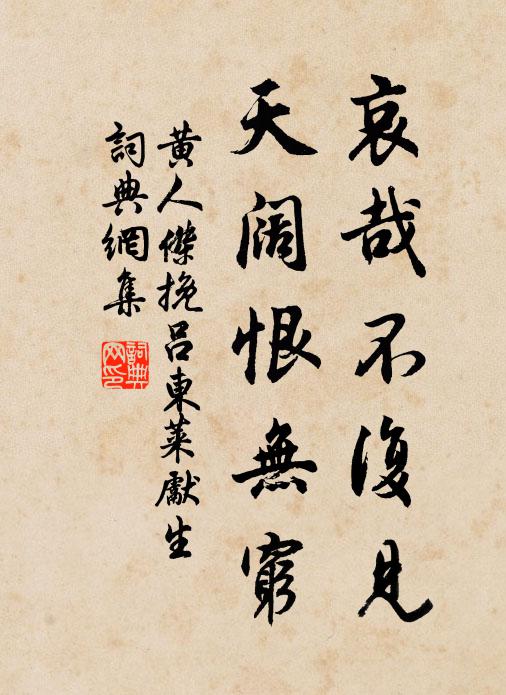 哀哉不復見
天闊恨無窮
黃人傑挽呂東萊獻生
詞典網集
詞典網印